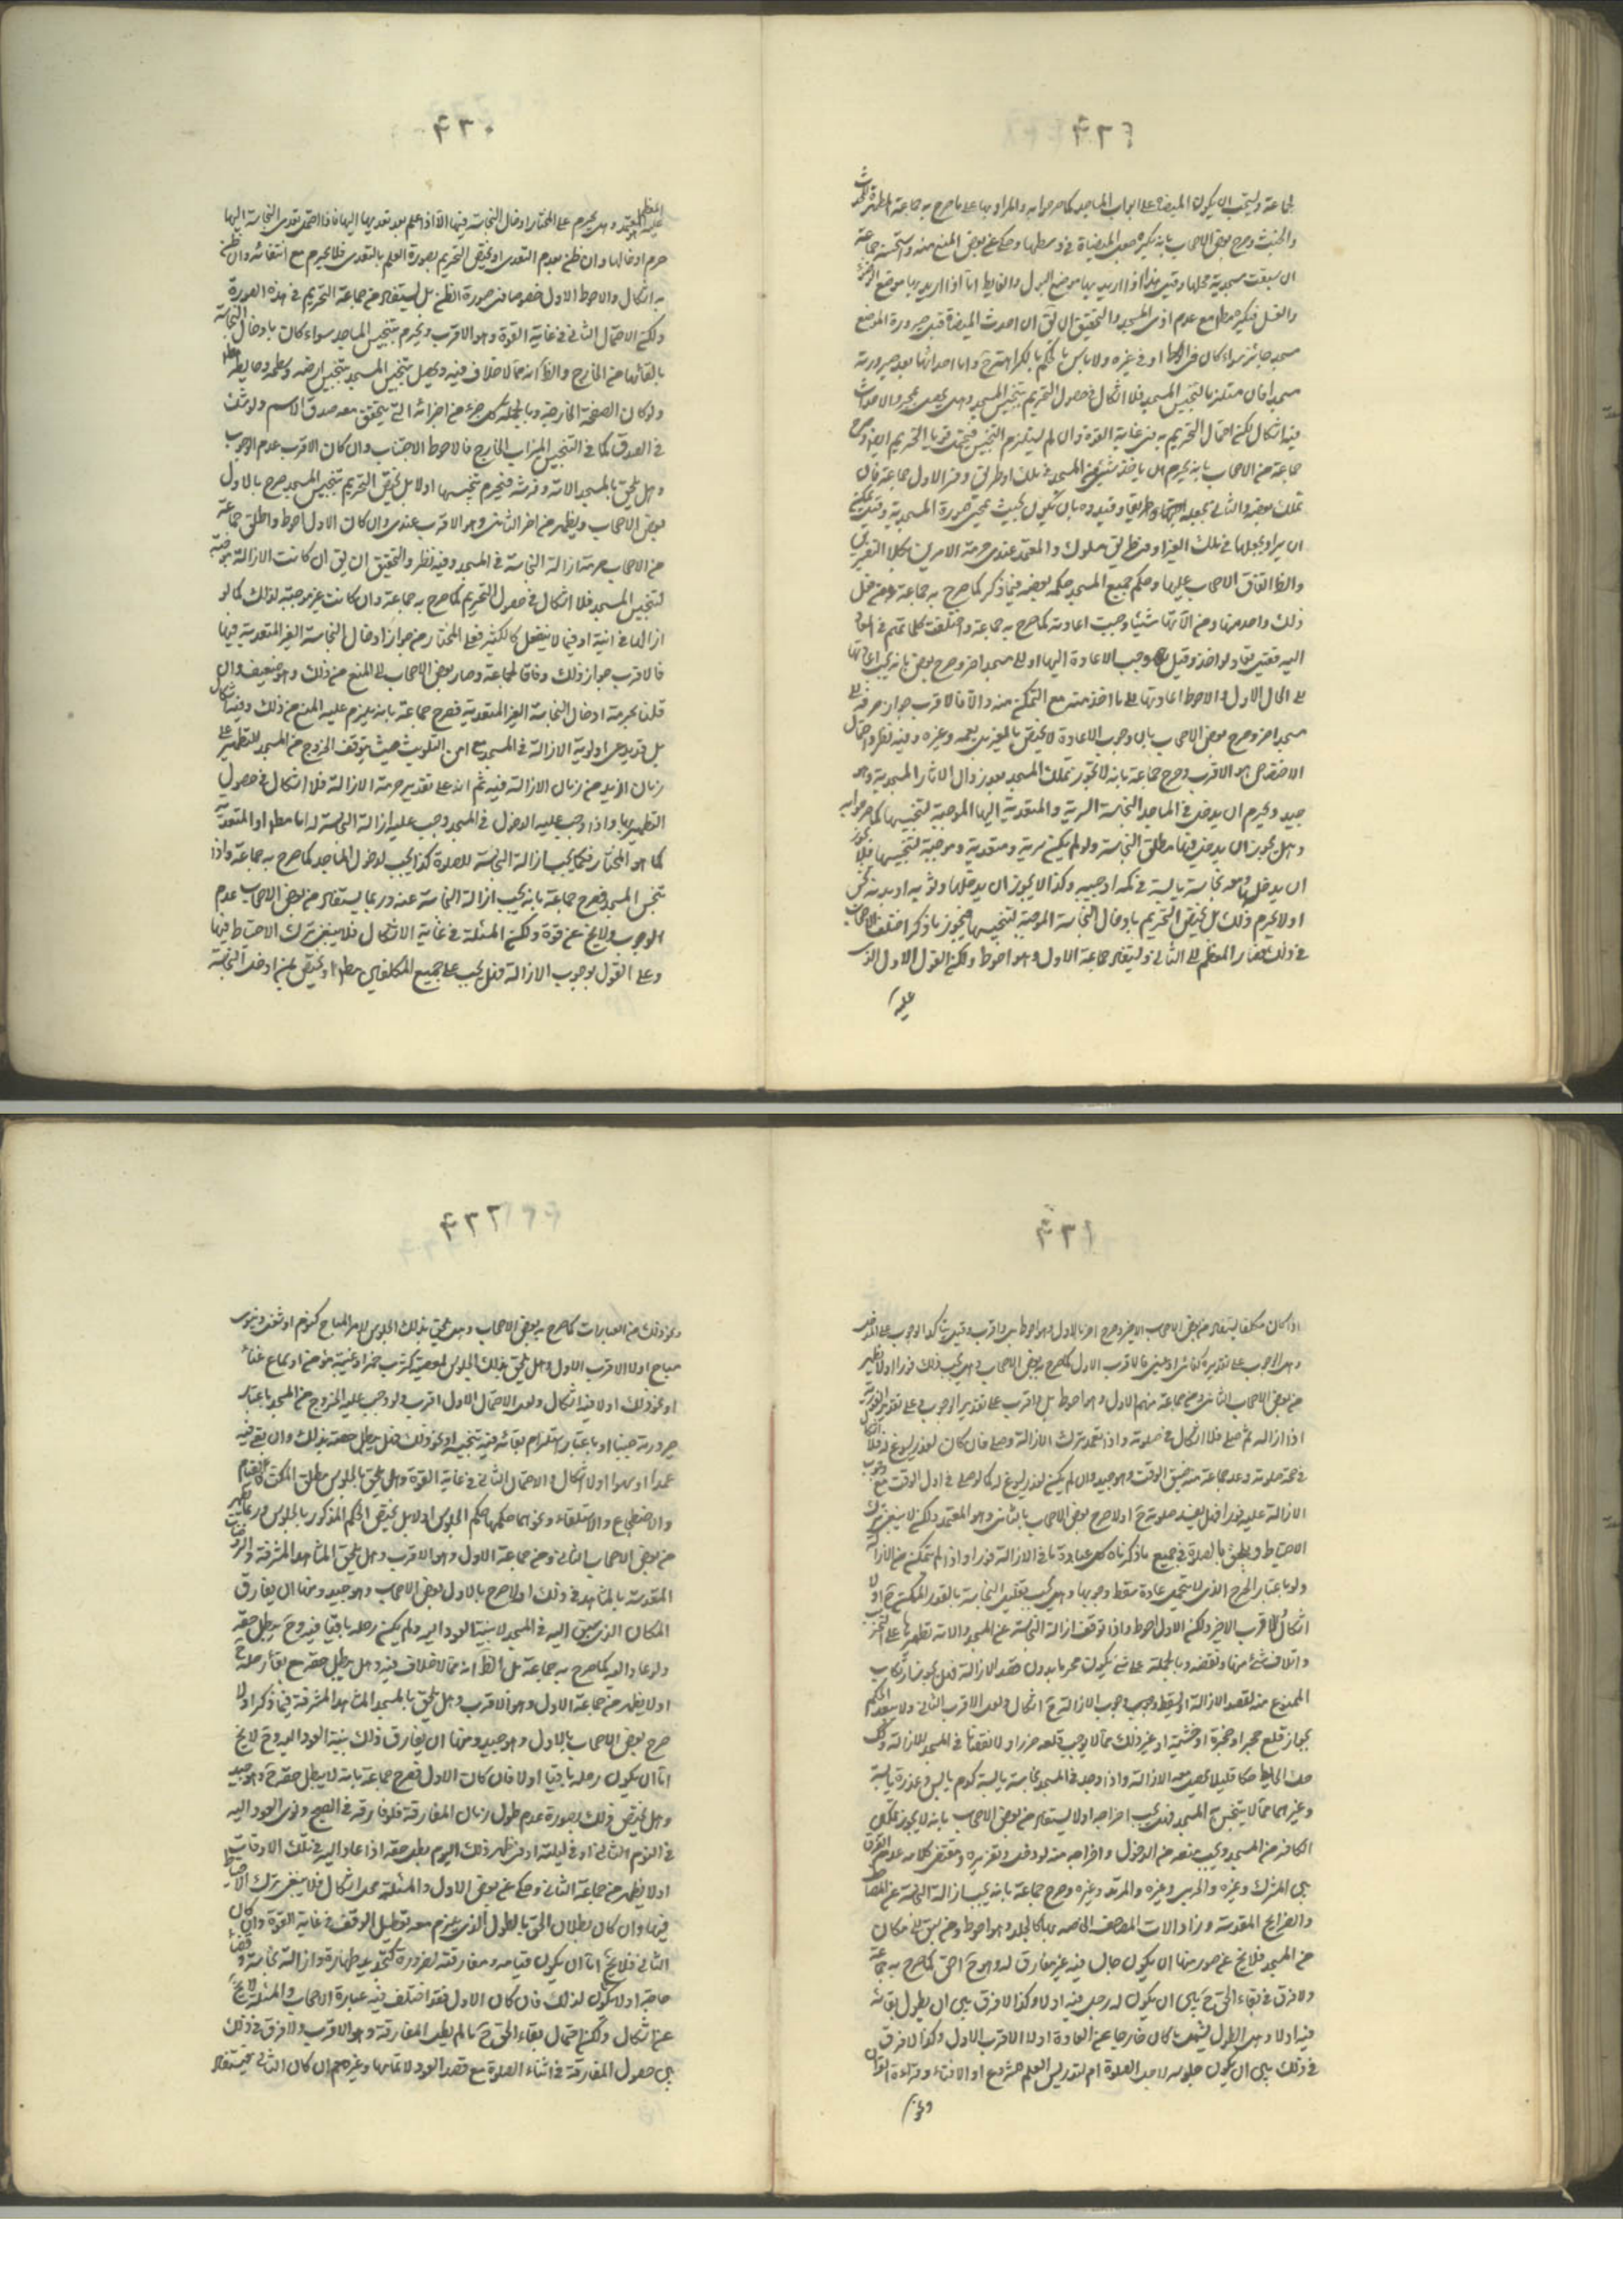 لجماعة ويستحب ان يكون الميضاة على ابواب المساجد كما صرحوا به والمراد بها على ما صرح به جماعة المطهرة للحدث
والخبث وصرح بعض الاصحاب بانه يكره جعل الميضاة في وسطها وحكى عن بعض المنع منه واستحسنه جماعة
ان سبقت مسجدية محلها وقيل هذا اذا اريد بها موضع البول والغايط اما اذا اريد بها موضع الوضوء
والغسل فيكره مطلقا مع عدم اذى المسجد والتحقيق ان يق ان احدث الميضاة قبل صيرورة الموضع
مسجدا جائز سواء كان في الوسط او في غيره ولا باس بالحكم بالكراهة ح واما احداثها بعد صيرورته
مسجدا فان استلزم التنجيس المسجد فلا اشكال في حصول التحريم بتنجيس المسجد وهل يحصل بمجرد الاحداث
فيه اشكال لكن احتمال التحريم به في غاية القوة وان لم يستلزم التنجيس فيحتمل قويا التحريم ايضا وصرح
جماعة من الاصحاب بانه يحرم ان ياخذ شيئا من المسجد في ملك او طريق وفسر الاول جماعة بان
تملك بعضه والثاني بجعله طريقا وقيده جماعة بان يكون بحيث تمحى صورة المسجدية وقيل يمكن
ان يراد بجعلها في ملك الغير او في طريق مسلوك والمعتمد عندي حرمة الامرين بكلا التفسيرين
والظ اتفاق الاصحاب عليها وحكم جميع المسجد حكم بعضه فيما ذكر كما صرح به جماعة ومتى فعل
ذلك واحد منها ومن الاتها شيئا وجبت اعادته كما صرح به جماعة واختلفت كلماتهم في المعاد
على الحال الاول والاحوط اعادتها على ما اخذ منه مع التمكن منه والا فالاقرب جواز صرفه في
مسجد اخر وصرح بعض الاصحاب بان وجوب الاعادة لا يختص بالمغير بل يعمه وغيره وفيه نظر واحتمال
الاختصاص هو الاقرب وصرح جماعة بانه لا يجوز تملك المسجد بعد زوال الاثار المسجدية وهو
جيد ويحرم ان يدخل في المساجد النجاسة السرية والمتعدية اليها الموجبة لتنجيسها كما صرحوا به
وهل يجوز ان يدخل فيها مطلق النجاسة ولو لم يكن سرية ومتعدية وموجبة لتنجيسها فلا يجوز
ان يدخل ومعه نجاسة يابسة في كمه او جيبه وكذا لا يجوز ان يدخلها وثوبه او بدنه نجس
او لا يحرم ذلك بل يختص التحريم بادخال النجاسة الموجبة لتنجيسها فيجوز ما ذكر اختلف الاصحاب
في ذلك فصار المعظم الى الثاني ويستفاد من جماعة الاول وهو احوط ولكن القول الاول الذى
عليه
٤٢٠
عليه المعظم هو المعتمد وهل يحرم على المختار ادخال النجاسة فيها الا اذا علم بعدم تعديها اليها فاذا احتمل تعدى النجاسة اليها
حرم ادخالها وان ظن بعدم التعدى او يختص التحريم بصورة العلم بالتعدى فلا يحرم مع انتفائه وان ظن
به اشكال والاحوط الاول خصوصا في صورة الظن بل يستفاد من جماعة التحريم في هذه الصورة
ولكن الاحتمال الثاني في غاية القوة وهو الاقرب ويحرم تنجيس المساجد سواء كان بادخال النجاسة
بالقائها من الخارج والظ انه مما لا خلاف فيه ويحصل تنجيس المسجد بتنجيس ارضه وسطحه وحايطه
ولو كان الصفحة الخارجة وبالجملة كل جزء من اجزائه التي يتحقق معه صدق الاسم ولو شك
في الصدق كما في التنجيس الميزاب الخارج فالاحوط الاجتناب وان كان الاقرب عدم الوجوب
وهل يلحق بالمسجد الاته وفرشه فيحرم تنجيسها او لا بل يختص التحريم بتنجيس المسجد صرح بالاول
بعض الاصحاب ويظهر من اخر الثاني وهو الاقرب عندي وان كان الاول احوط واطلق جماعة
من الاصحاب حرمة ازالة النجاسة في المسجد وفيه نظر والتحقيق ان يق ان كانت الازالة موجبة
لتنجيس المسجد فلا اشكال في حصول التحريم كما صرح به جماعة وان كانت غير موجبة لذلك كما لو
ازالها في انية او فيما لا ينفعل كالكثير فعلى المختار من جواز ادخال النجاسة الغير المتعدية فيها
فالاقرب جواز ذلك وفاقا لجماعة وصار بعض الاصحاب الى المنع من ذلك وهو ضعيف وان
قلنا بحرمة ادخال النجاسة الغير المتعدية فصرح جماعة بانه يلزم عليه المنع من ذلك وفيه اشكال
بل قد يدعى اولوية الازالة في المسجد مع امن التلويث حيث يتوقف الخروج من المسجد للتطهير على
زمان ازيد من زمان الازالة فيه ثم انه على تقدير حرمة الازالة فلا اشكال في حصول
التطهير بها واذا وجب عليه الدخول في المسجد وجب عليه ازالة النجاسة له اما مطلقا او المتعدية
كما هو المختار فكما يجب ازالة النجاسة للصلوة كذا يجب لدخول المساجد كما صرح به جماعة واذا
تنجس المسجد فصرح جماعة بانه يجب ازالة النجاسة عنه وربما يستفاد من بعض الاصحاب عدم
الوجوب ولا يخ عن قوة ولكن المسئلة في غاية الاشكال فلا ينبغي ترك الاحتياط فيها
وعلى القول بوجوب الازالة فهل يجب على جميع المكلفين مطلقا او يختص بمن ادخل النجاسة
٤٢١
اذا كان مكلفا يستفاد من بعض الاصحاب الاخير وصرح اخر بالاول وهو احوط بل واقرب وقيل يتاكد الوجوب على المدخل
وهل الوجوب على تقديره كفائي او عيني فالاقرب الاول كما صرح به بعض الاصحاب وهل يجب ذلك فورا او لا يظهر
من بعض الاصحاب الثاني وعن جماعة منهم الاول وهو احوط بل واقرب على تقدير الوجوب وعلى تقدير الفورية
اذا ازاله ثم صلى فلا اشكال في صلوته واذا تعمد ترك الازالة وصلى فان كان لعذر يسوغ له فلا اشكال
في صحة صلوته وعد جماعة منه ضيق الوقت وهو جيد وان لم يكن لعذر يسوغ له كما لو صلى في اول الوقت مع وجوب
الازالة عليه فورا فهل يفسد صلوته ح او لا صرح بعض الاصحاب بالثاني وهو المعتمد ولكن لا ينبغي ترك
الاحتياط ويلحق بالصلوة في جميع ما ذكرناه كل عبادة ينافي الازالة فورا واذا لم يتمكن من الازالة
ولو باعتبار الحرج الذى لا يتحمل عادة سقط وجوبها وهل يجب تقليل النجاسة بالقدر الممكن ح او لا
اشكال والاقرب الاخير ولكن الاول احوط واذا توقف ازالة النجاسة عن المسجد والاته تطهيرها على
واتلاف شئ منها ونقضه وبالجملة على شئ يكون محرما بدون قصد الازالة فهل يجوز ارتكاب
الممنوع منه لقصد الازالة او يسقط وجوب الازالة ح اشكال ولعل الاقرب الثاني ولا يبعد الحكم
بجواز قلع حجر او صخرة او خشبة او غير ذلك مما لا يوجب قلعه ضررا ولا نقصا في المسجد للازالة وكك
حك الحايط حكا قليلا يحصل معه الازالة واذا وجد في المسجد نجاسة يابسة كدم يابس وعذرة يابسة
وغيرهما مما لا يتنجس به المسجد فهل يجب اخراجه او لا يستفاد من بعض الاصحاب بانه لا يجوز تمكين
الكافر من المسجد ويجب منعه من الدخول واخراجه منه لو دخل وتعزيره ومقتضى كلامه عدم الفرق
بين المشرك وغيره والحربي وغيره والمرتد وغيره وصرح جماعة بانه يجب ازالة النجاسة عن المصاحف
والضرايح المقدسة وزاد الات المصحف الخاصه بها كالجلد وهو احوط ومن سبق الى مكان
من المسجد فلا يخ عن صور منها ان يكون جالسا فيه غير مفارق له وهو ح احق كما صرح به جماعة
ولا فرق في بقاء الحق ح بين ان يكون له رحل فيه او لا وكذا لا فرق بين ان يطول بقائه
فيه او لا وهل الطول يشمل ما كان خارجا عن العادة او لا الاقرب الاول وكذا لا فرق
في ذلك بين ان يكون جلوسه لاجل الصلوة ام لتدريس العلم الشرع او الافتاء وقراءة القران
ونحو
٤٢٢
ونحو ذلك من العبادات كما صرح به بعض الاصحاب وهل يلحق بذلك الجلوس لامر المباح كنوم او شغل دنيوي
مباح او لا الاقرب الاول وهل يلحق بذلك الجلوس لمعصية كشرب خمر او غيبة مؤمن او سماع غناء
او نحو ذلك او لا فيه اشكال ولعل الاحتمال الاول اقرب ولو وجب عليه الخروج من المسجد باعتبار
صيرورته جنبا او باعتبار استلزام بقائه فيه تنجيسه او نحو ذلك فهل يبطل حقه بذلك وان بقى فيه
عمدا او سهوا او لا اشكال والاحتمال الثاني في غاية القوة وهل يلحق بالجلوس مطلق المكث كالقيام
والاضطجاع والاستلقاء ونحوها حكمها حكم الجلوس او لا بل يختص الحكم المذكور بالجلوس وربما يظهر
من بعض الاصحاب الثاني ومن جماعة الاول وهو الاقرب وهل يلحق المشاهد المشرفة والروضات
المقدسة بالمساجد في ذلك او لا صرح بالاول بعض الاصحاب وهو جيد ومنها ان يفارق
المكان الذى سبق اليه في المسجد لا بنية العود اليه ولم يكن رحله باقيا فيه وح يبطل حقه
ولو عاد اليه كما صرح به جماعة بل الظ انه مما لا خلاف فيه وهل يبطل حقه مع بقاء رحله ح
او لا يظهر من جماعة الاول وهو الاقرب وهل يلحق بالمسجد المشاهد المشرفة فيما ذكر او لا
صرح بعض الاصحاب بالاول وهو جيد ومنها ان يفارق ذلك بنية العود اليه وح لا يخ
اما ان يكون رحله باقيا او لا فان كان الاول فصرح جماعة بانه لا يبطل حقه ح وهو جيد
وهل يختص ذلك بصورة عدم طول زمان المفارقة فلو فارقه في الصبح ونوى العود اليه
في اليوم الثاني او في ليلته او في ظهر ذلك اليوم بطل حقه اذا عاد اليه في تلك الاوقات
او لا يظهر من جماعة الثاني وحكى عن بعض الاول والمسئلة محل اشكال فلا ينبغي ترك الاحتياط
فيها وان كان بطلان الحق بالطول الذى يلزم معه تعطيل الوقف في غاية القوة وان كان
الثاني فلا يخ اما ان يكون قيامه ومفارقته لضرورة كتجديد طهارة وازالة نجاسة وقضاء
حاجة او لا يكون لذلك فان كان الاول فقد اختلف فيه عبارة الاصحاب والمسئلة لا يخ
عن اشكال ولكن احتمال بقاء الحق ح ما لم يطل المفارقة وهو الاقرب ولا فرق في ذلك
بين حصول المفارقة في اثناء الصلوة مع قصد العود لاتمامها وغيره وان كان الثاني فيستفاد